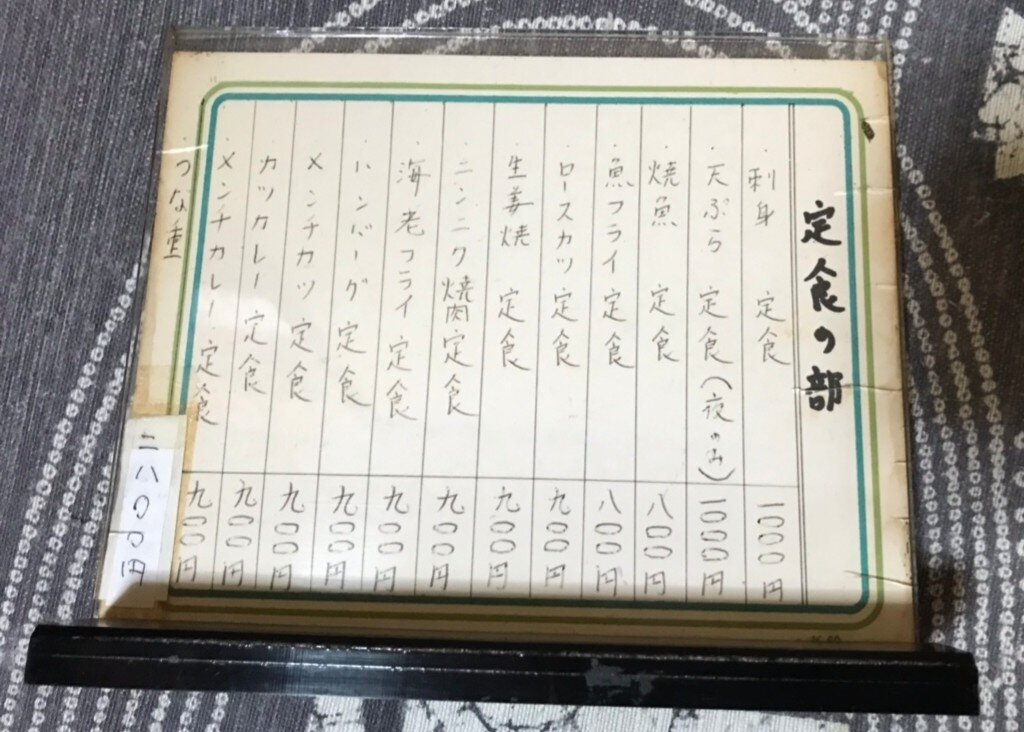 定食の部
・刺身 定食 一〇〇〇円
・天ぷら 定食(夜のみ) 一〇〇〇円
・焼魚 定食 八〇〇円
・魚フライ定食 八〇〇円
・ロースカツ定食 九〇〇円
・生姜焼 定食 九〇〇円
・ニンニク焼肉定食 九〇〇円
・海老フライ定食 九〇〇円
・ハンバーグ定食 九〇〇円
・メンチカツ定食 九〇〇円
・カツカレー定食 九〇〇円
・メンチカレー定食 九〇〇円
・うな重 二八〇〇円